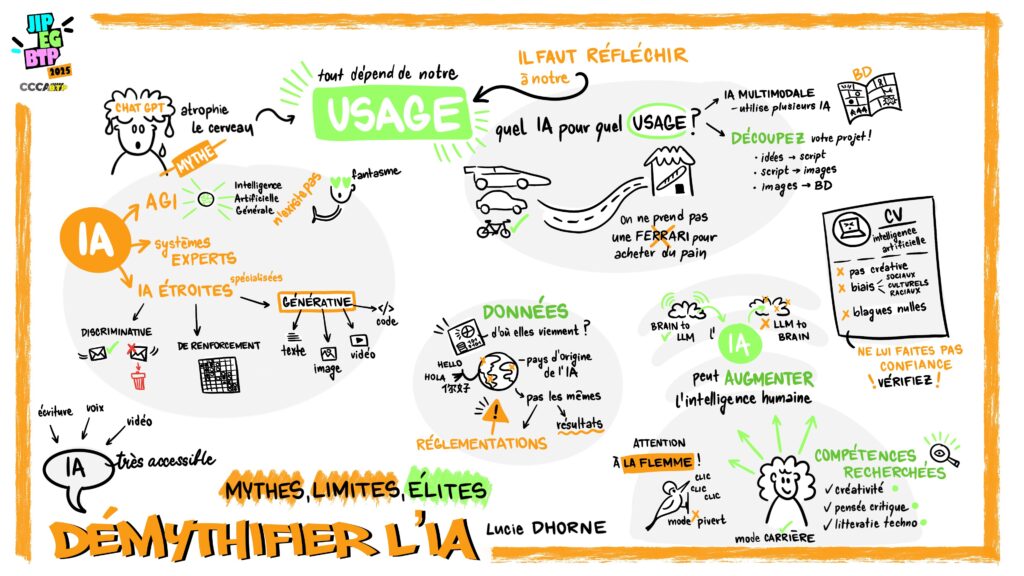 JIP
EG
BTP
2025
CCCA
BTP
CHAT GPT
atrophie
le cerveau
MYTHE
tout dépend de notre
USAGE
IL FAUT RÉFLÉCHIR
à notre
quel IA pour quel USAGE ?
IA MULTIMODALE
- utilise plusieurs IA
DÉCOUPEZ votre projet !
• idées → script
• script → images
• images → BD
BD
On ne prend pas
une FERRARI pour
acheter du pain
IA
AGI
Intelligence
Artificielle
Générale
n'existe pas
fantasme
systèmes
EXPERTS
IA ÉTROITES
spécialisées
DISCRIMINATIVE
DE RENFORCEMENT
GÉNÉRATIVE
</>
code
texte
image
vidéo
écriture
voix
vidéo
IA
très accessible
DONNÉES
d'où elles viennent ?
HELLO
HOLA
pays d'origine
de l'IA
pas les mêmes
résultats
!
RÉGLEMENTATIONS
BRAIN to
LLM
l'
IA
LLM to
BRAIN
peut AUGMENTER
l'intelligence humaine
CV
intelligence
artificielle
x pas créative
x biais
SOCIAUX
CULTURELS
RACIAUX
x blagues nulles
NE LUI FAITES PAS
CONFIANCE
! VÉRIFIEZ !
ATTENTION
À LA FLEMME !
CLIC
CLIC
CLIC
mode pivert
mode CARRIÈRE
COMPÉTENCES
RECHERCHÉES
✓ créativité
✓ pensée critique
✓ litteratie techno
MYTHES, LIMITES, ÉLITES
DÉMYTHIFIER L'IA
Lucie DHORNE